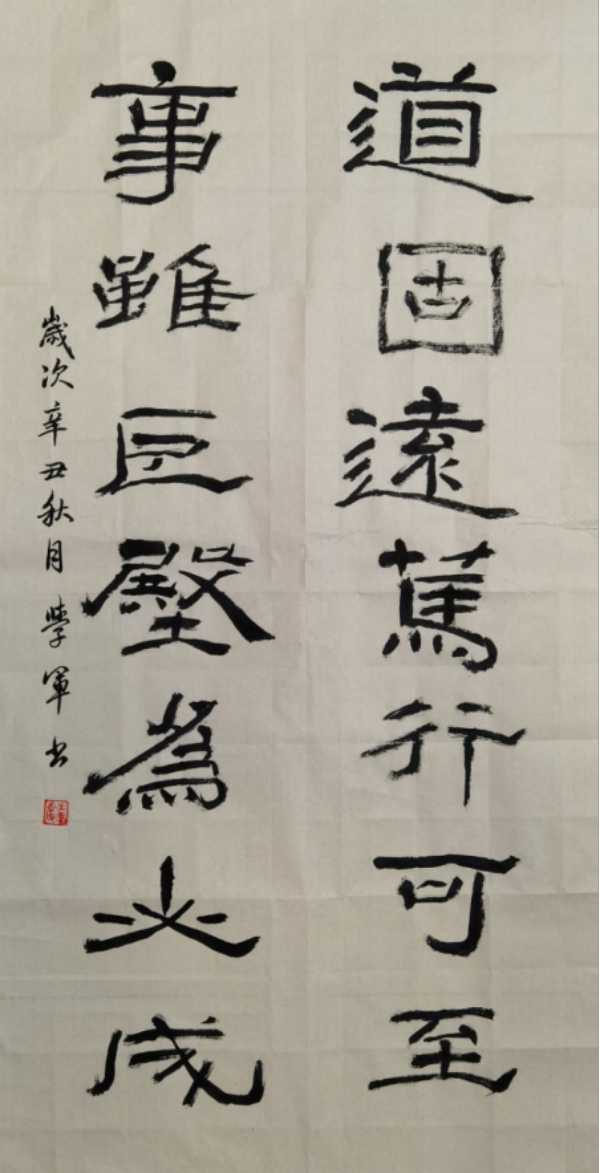 道固遠篤行可至
事雖巨堅為必成
歲次辛丑秋月學軍书